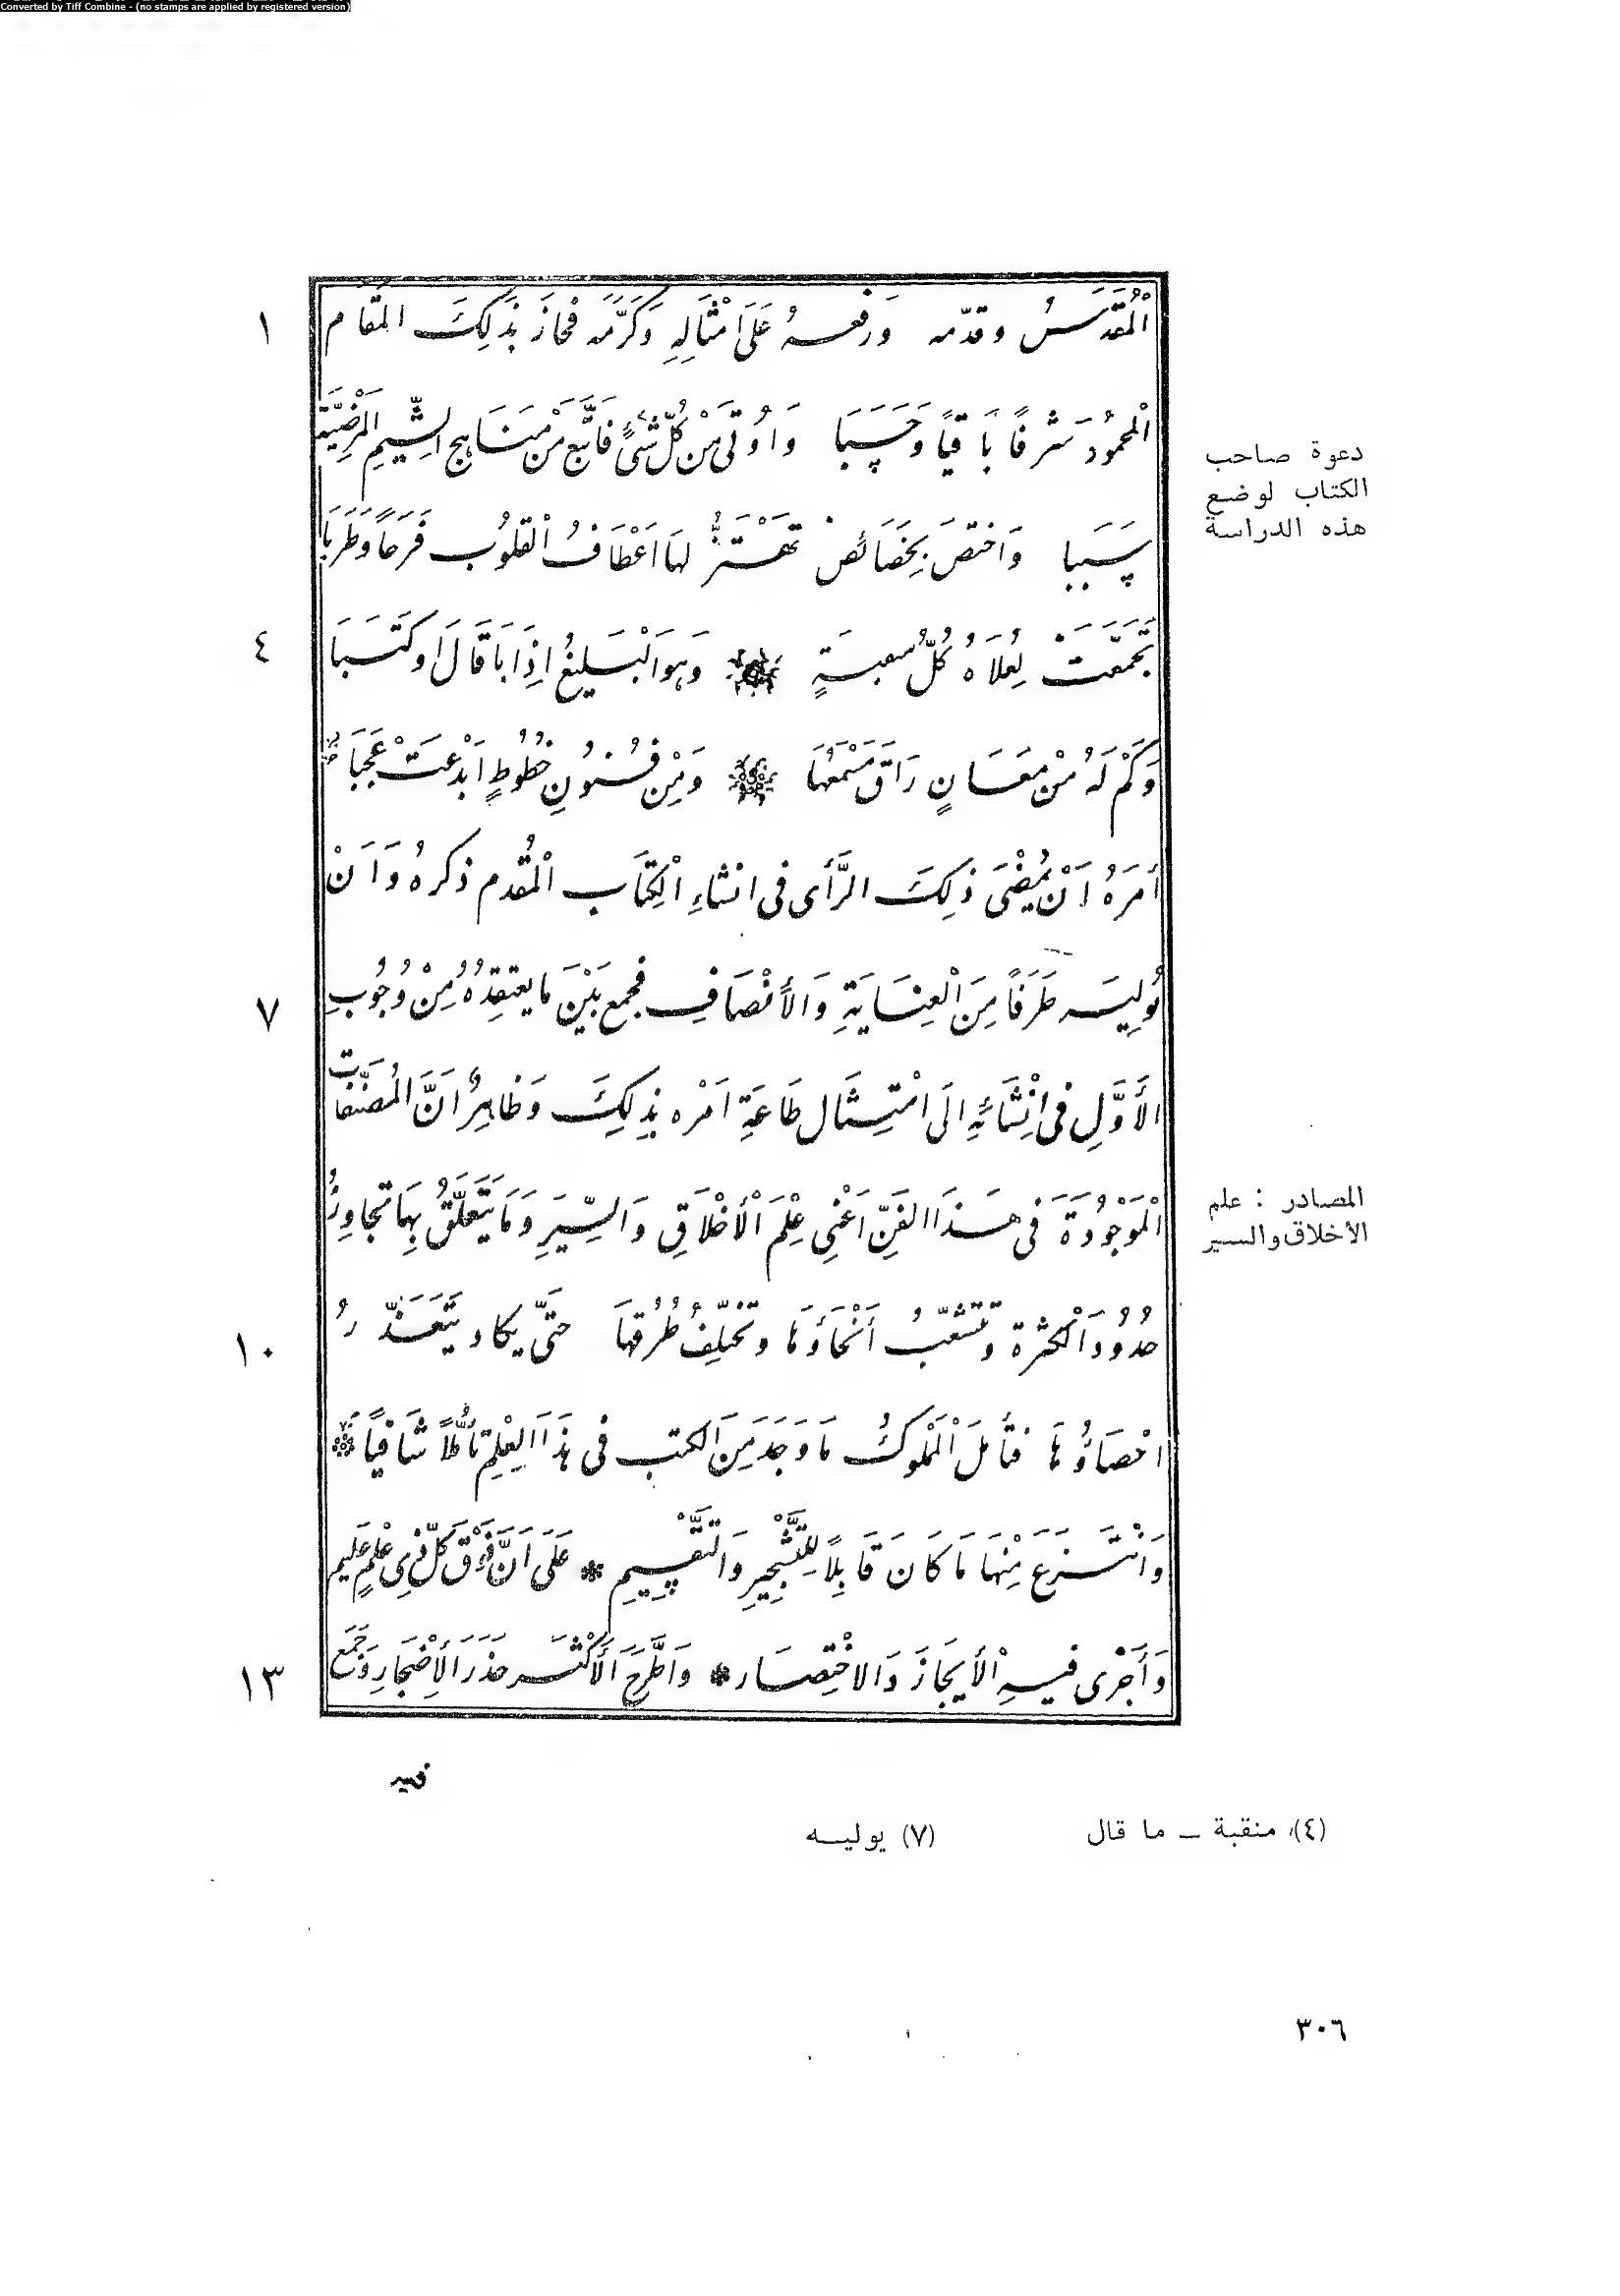 Converted by Tiff Combine - (no stamps are applied by registered version)
١
ٱلْمُقَدَّسُ وقدّمه وَرفعهُ عَلَى امْثَالِهِ وَكَرَّمَه فحازَ بذَلِكَ المقَام
الْمحمُود شرفًا بَاقيًا وحَسَبَا وَاوُتىَ مَنْ كُلّ شَىًٔ فَاتَّبع مَنْ مَنَاهِج الشِّيَمِ المَرْضِيَّة
سَبَبا وَاختصَّ بِخَصَائِصْ تهْتَزُّ لهَا اَعْطَافُ القلوُب فَرَحاً وَطَرَبَا
٤
تجَمَّعَتْ لِعُلَاهُ كُلُّ معبسةٍ وَهوَ الْبَليغُ اِذَا بَا قَالَ اَو كَتَبَا
وَكَمْ لَهُ مِنْ مَعَانٍ رَاقَ مَسْمَعُهَا وَمِنْ فُنُونِ خُطُوطٍ اَبْدعَتْ عَجَبَا
أمَرَهُ اَنْ يُمْضِىَ ذلِكَ الرَّأى فى انشَاءِ الْكِتَاب الْمُقَدم ذكرهُ وَاَنْ
٧
نُولِيَه طَرَفًا مِنَ الْعِنَايَةِ وَالْأنْصَافِ فجمع بَيْنَ مَا يعتقِدُهُ مِنْ وُجُوبِ
الأَوَّلِ فى اِنْشَائِهِ الَى امْتِثَال طَاعَةِ امْرِه بذِلِكَ وَظَاهِرٌ اَنَّ المُصَنَّفَات
الْمَوْجُودَةَ فى هَذَا الفَنّ اَعْنِى عِلْمَ الْأَخْلَاقِ وَالسِّيَرِ وَمَا يَتَعَلَّقُ بِهَا تتجَاوزُ
١٠
حدُودَ الْكثرة وَتتشعّبُ أَنْحَاؤهَا وتختلِفُ طُرُقهَا حتَّى يكاد يتَعَذّرُ
احْصَاؤُهَا فتأملَ الْمَمْلوكُ مَا وَجَدَ مِنَ الكتب فى هذَا العِلْمِ تأمُّلاً شَافِياً
وَانْتَزعَ مِنْهَا مَا كَانَ قَابِلاً لِلتَّشْجِيرِ وَالتَّقسِيمِ * عَلَى اَنَّ فَوْقَ كلّ ذِى عْلمٍ عَليم
١٣
وَأَجْرى فيهِ الْأيجَازَ وَالاخْتِصَار * وَاطَّرَحَ الْأَكْثَر حذَرَ الْأِضْجَارِ وَجَمَع
فيه
دعوة صاحب
الكتاب لوضع
هذه الدراسة
المصادر : علم
الأخلاق والسير
(٤) منقبة – ما قال (٧) يوليه
٣٠٦